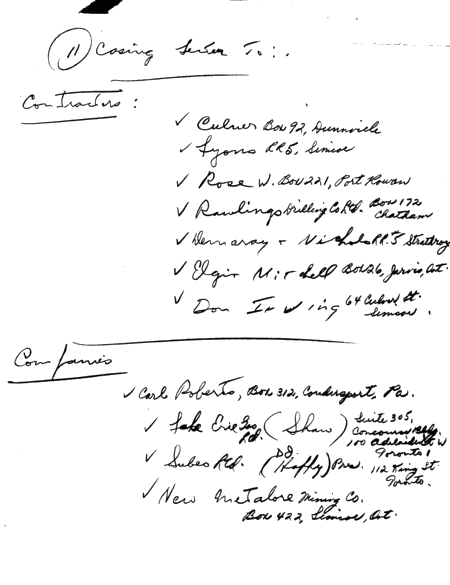 11 Casing Letter To:
Contractors:
✓ Culver Box 92, Dunnville
✓ Lyons RR5, Simcoe
✓ Rose W. Box 221, Port Rowan
✓ Rawlings Drilling Co Ltd. Box 172
Chatham
✓ Demaray + Nichols RR#5 Strathroy
✓ Elgin Mitchell Box 26, Jarvis, Ont.
✓ Don Irving 64 Culver St.
Simcoe.
Companies
✓ Carl Roberts, Box 312, Coudersport, Pa.
✓ Lake Erie Gas Ltd. (Shaw) Suite 305,
Concourse Bldg.
100 Adelaide St W
Toronto 1
✓ Subeo Ltd. (Haffy) Pres. 112 King St
Toronto.
✓ New Metalore Mining Co.
Box 422, Simcoe, Ont.